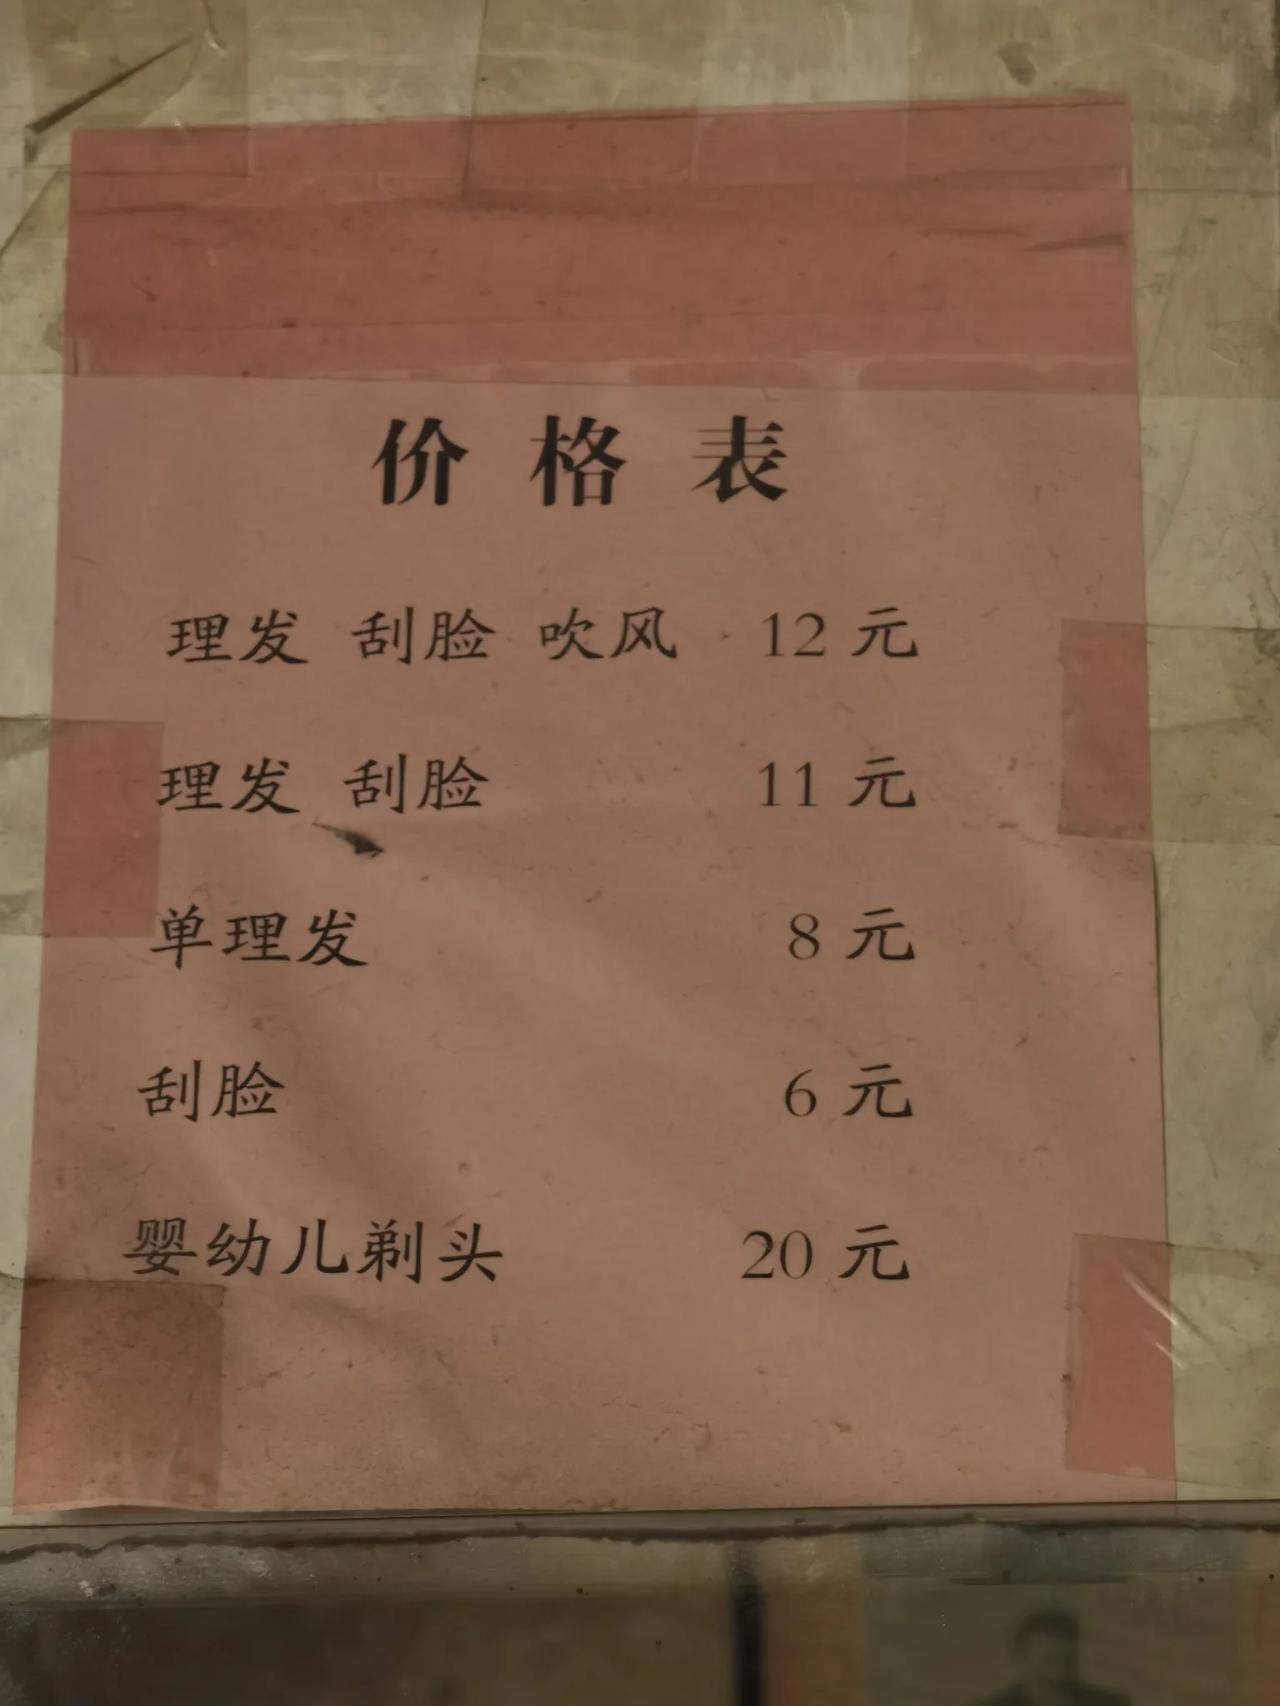 价格表
理发 刮脸 吹风 12 元
理发 刮脸 11 元
单理发 8 元
刮脸 6 元
婴幼儿剃头 20 元